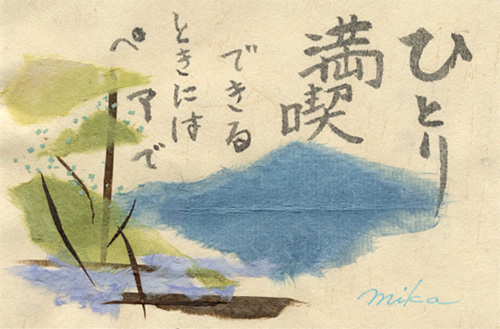 ひとり
満喫
できる
ときには
ペアで
mika